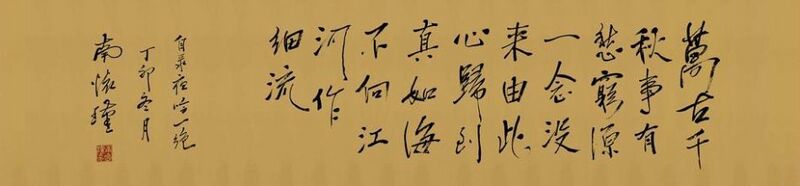 萬古千
秋事有
愁窮源
一念没
来由此
心歸到
真如海
不向江
河作
细流
自录夜吟一绝
丁卯冬月
南怀瑾